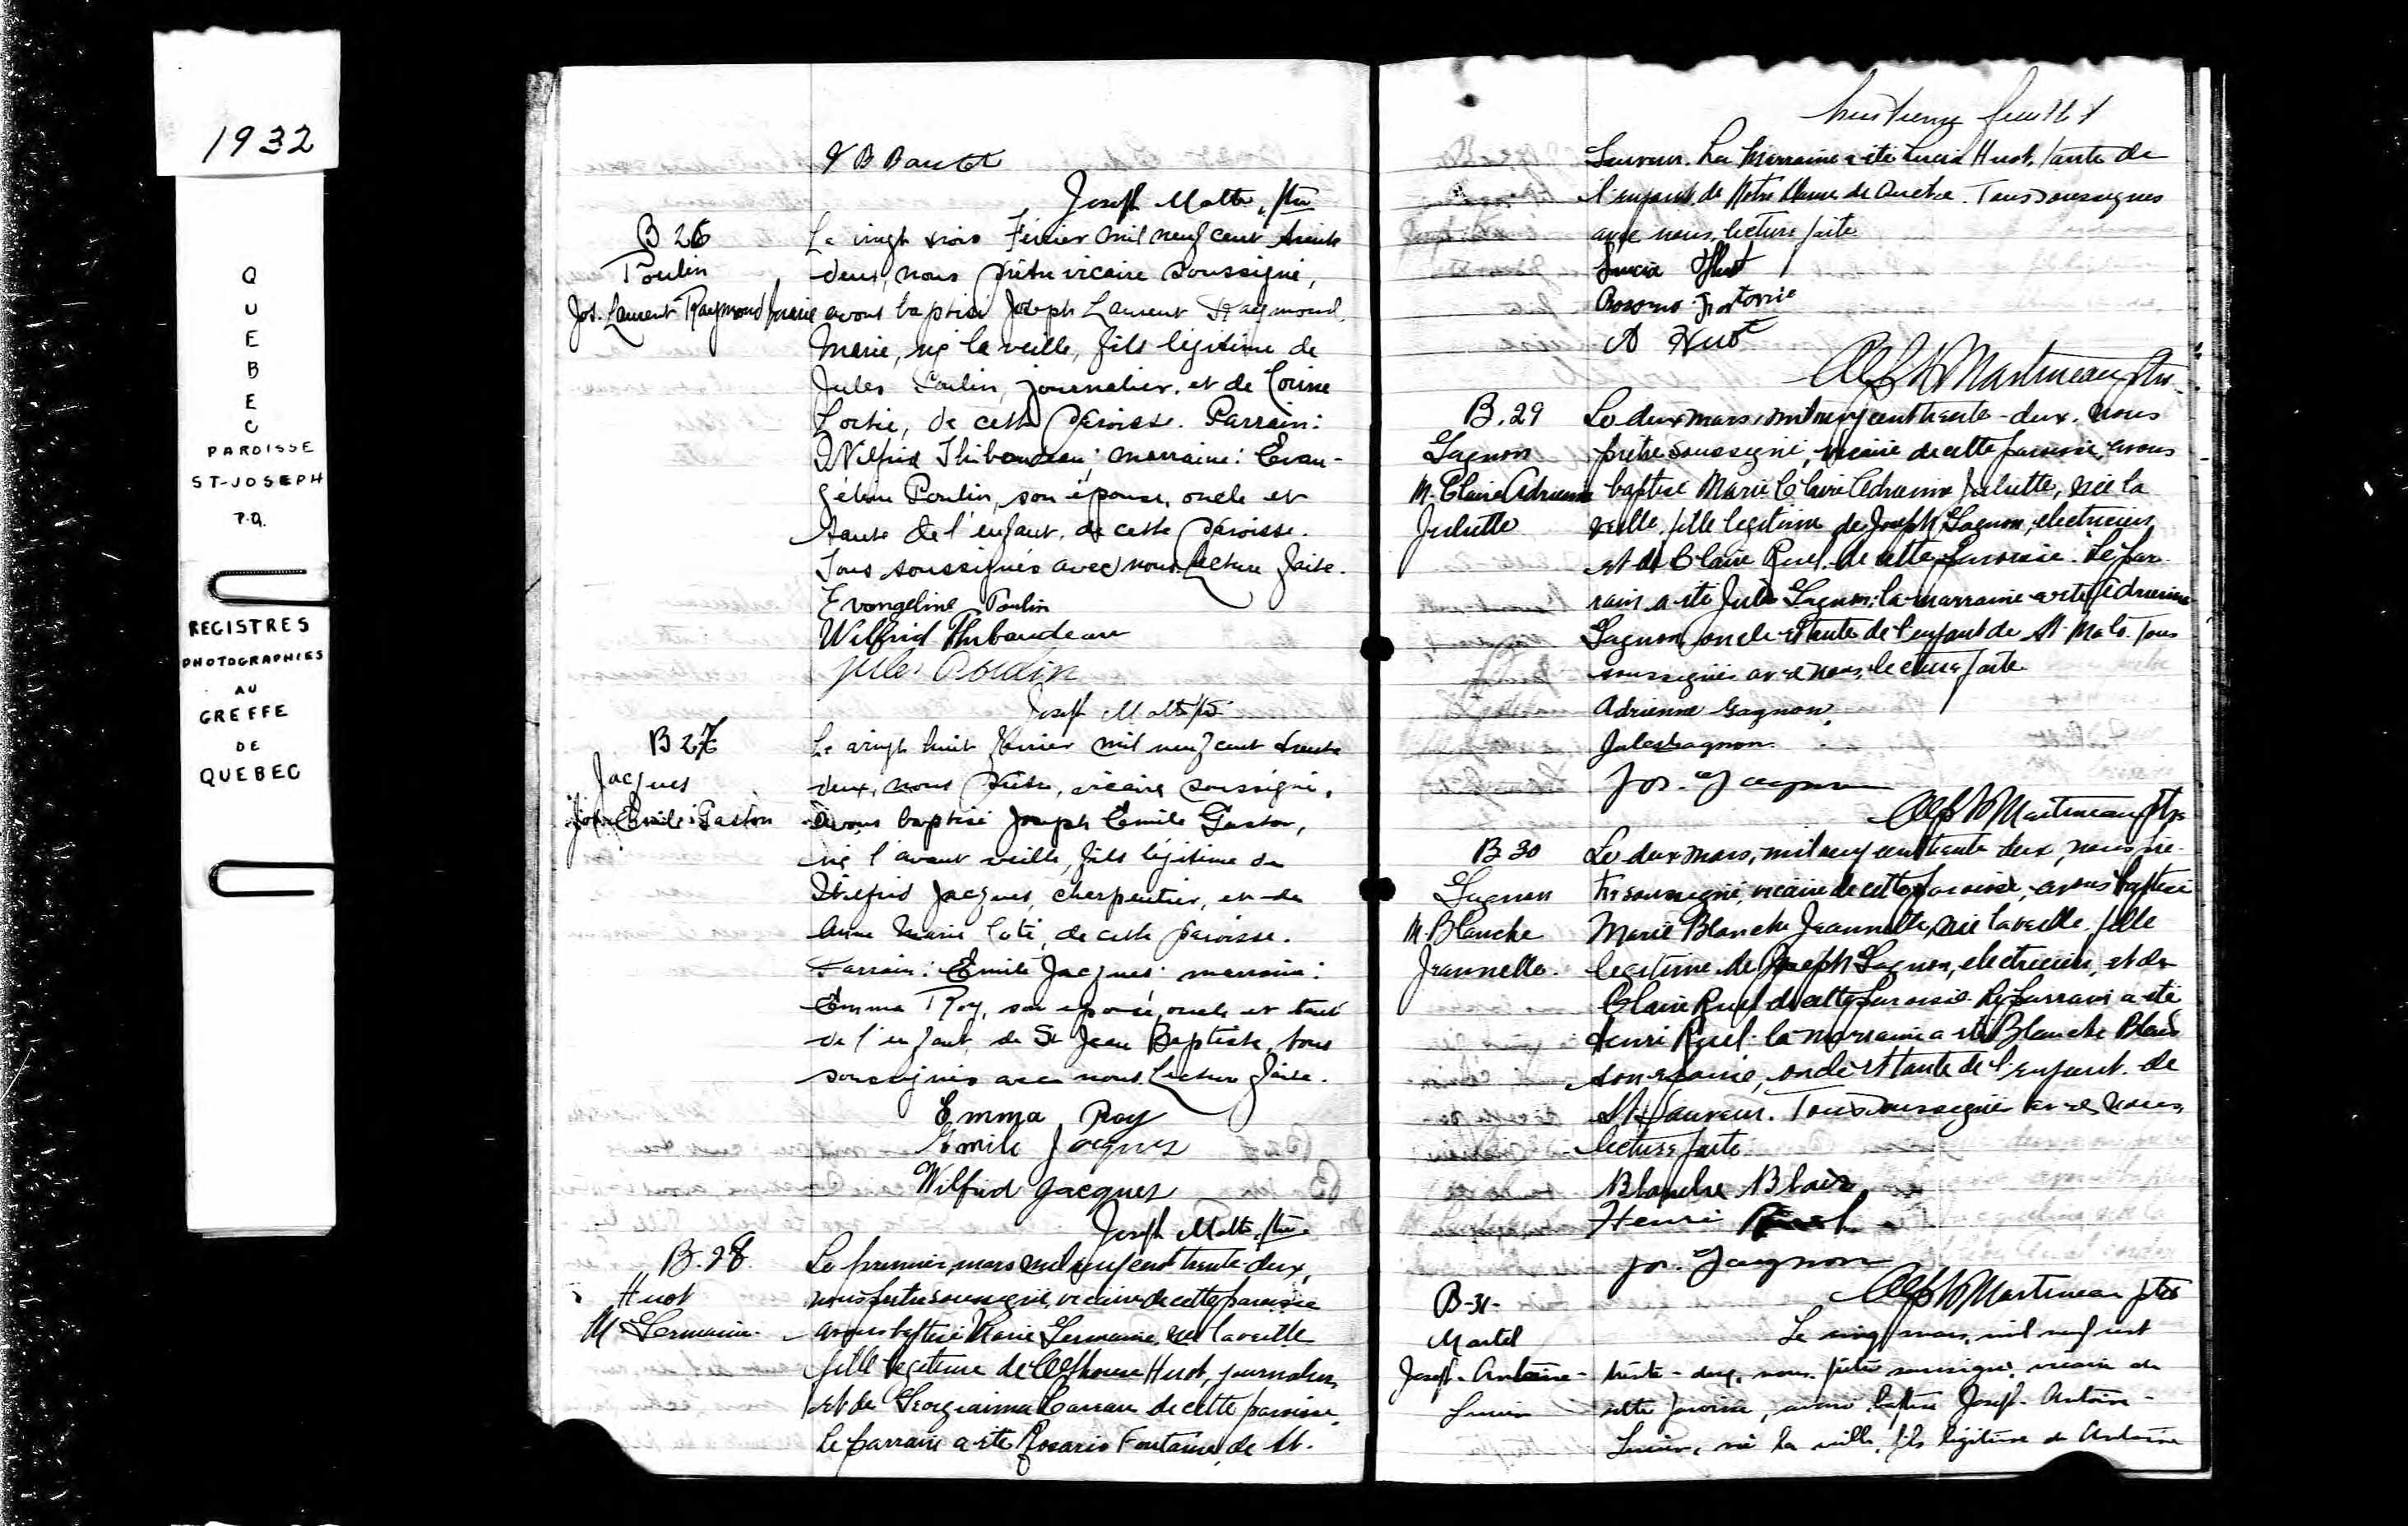 1932
QUEBEC
PAROISSE
ST-JOSEPH
P.Q.
REGISTRES
PHOTOGRAPHIES
AU
GREFFE
DE
QUEBEC
Joseph Matte, ptre
B 26
Poulin
Jos. Laurent Raymond Marie
Le vingt trois Février mil neuf cent trente
deux, nous prêtre vicaire soussigné,
avons baptisé Joseph Laurent Raymond
Marie, né la veille, fils légitime de
Jules Poulin, journalier, et de Corine
Lortie, de cette paroisse. Parrain:
Wilfrid Thibaudeau; marraine: Evan-
géline Poulin, son épouse, oncle et
tante de l'enfant, de cette paroisse.
Tous soussignés avec nous. Lecture faite.
Evangeline Poulin
Wilfrid Thibaudeau
Jules Poulin
Joseph Matte ptre
B 27
Jacques
Jos. Emile Gaston
Le vingt huit février mil neuf cent trente
deux, nous prêtre, vicaire soussigné,
avons baptisé Joseph Emile Gaston,
né l'avant veille, fils légitime de
Wilfrid Jacques, charpentier, et de
Anne Marie Coté, de cette paroisse.
Parrain: Emile Jacques; marraine:
Emma Roy, son épouse, oncle et tante
de l'enfant, de St Jean Baptiste, tous
soussignés avec nous. Lecture faite.
Emma Roy
Emile Jacques
Wilfrid Jacques
Joseph Matte, ptre
B. 28
Huot
M Germaine
Le premier mars mil neuf cent trente deux,
nous prêtre soussigné, vicaire de cette paroisse
avons baptisé Marie Germaine, née la veille
fille légitime de Alphonse Huot, journalier,
et de Georgianna Garneau de cette paroisse.
Le parrain a été Rosario Fontaine, de St.
huitième feuillet
Sauveur. La marraine a été Lucia Huot, tante de
l'enfant, de Notre Dame de Quebec. Tous soussignés
avec nous, lecture faite.
Lucia Huot
A Huot
Alph Martineau ptre
B. 29
Gagnon
M. Claire Adrienne
Juliette
Le deux mars, mil neuf cent trente-deux, nous
prêtre soussigné, vicaire de cette paroisse, avons
baptisé Marie Claire Adrienne Juliette, née la
veille, fille légitime de Joseph Gagnon, électricien,
et de Claire Ruel, de cette paroisse. Le par-
rain a été Jules Gagnon; la marraine a été Adrienne
Gagnon, oncle et tante de l'enfant de St Malo. Tous
soussignés avec nous, lecture faite.
Adrienne Gagnon
Jules Gagnon
Jos. Gagnon
Alph Martineau ptre
B 30
Gagnon
M. Blanche
Jeannette
Le deux mars, mil neuf cent trente deux, nous prê-
tre soussigné, vicaire de cette paroisse, avons baptisé
Marie Blanche Jeannette, née la veille, fille
légitime de Joseph Gagnon, électricien, et de
Claire Ruel de cette paroisse. Le parrain a été
Henri Ruel; la marraine a été Blanche Blais
son épouse, oncle et tante de l'enfant de
St Sauveur. Tous soussignés avec nous,
lecture faite.
Blanche Blais
Henri Ruel
Jos. Gagnon
Alph Martineau ptre
B-31-
Martel
Joseph-Antoine-
Lucien
Le cinq mars, mil neuf cent
trente-deux, nous prêtre soussigné, vicaire de
cette paroisse, avons baptisé Joseph-Antoine-
Lucien, né la veille, fils légitime de Antoine